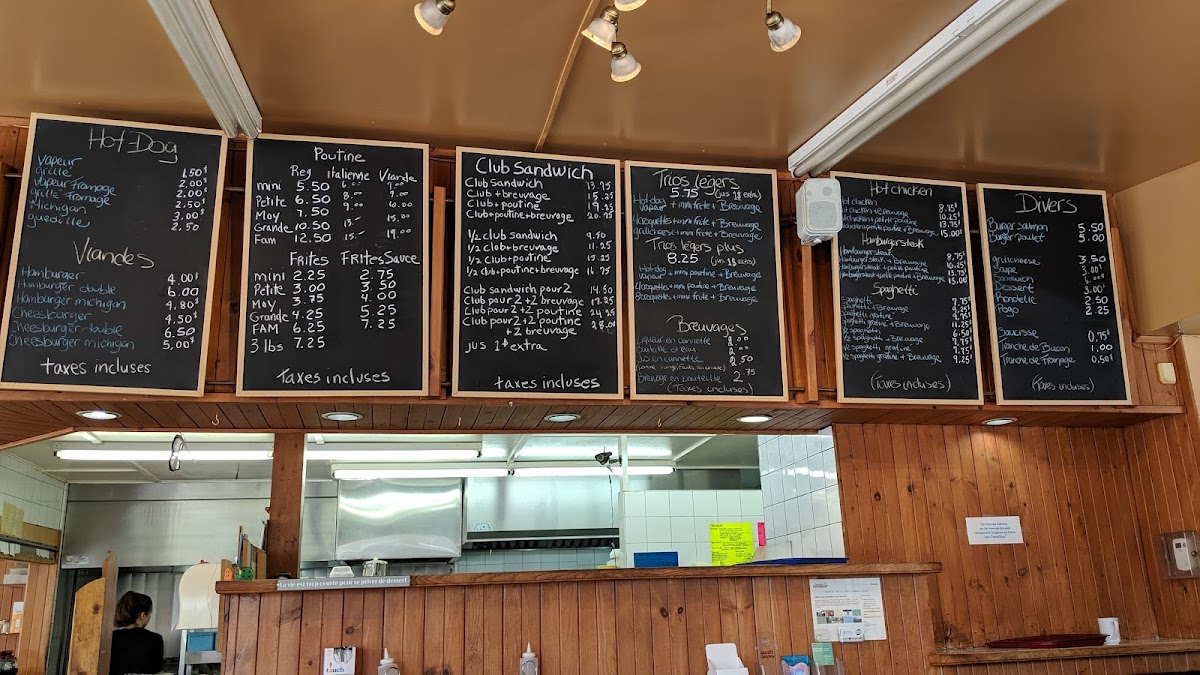 Hot Dog
Vapeur 1.50$
Grille 2.00$
Vapeur Fromage 2.00$
Grille Fromage 2.50$
Michigan 3.00$
guedille 2.50
Viandes
Hamburger 4.00$
Hamburger double 6.00
Hamburger michigan 4.80$
Cheesburger 4.50$
Cheesburger double 6.50
Cheesburger michigan 5.00$
taxes incluses
Poutine
Reg italienne Viande
mini 5.50 6.00 7.00
Petite 6.50 8.00
Moy 7.50 9.00 10.00
Grande 10.50 13.- 15.00
Fam 12.50 15.- 19.00
Frites Frites Sauce
mini 2.25 2.75
Petite 3.00 3.50
Moy 3.75 4.00
Grande 4.25 5.25
FAM 6.25 7.25
3 lbs 7.25
taxes incluses
Club Sandwich
Club sandwich 13.75
Club + breuvage 15.25
Club + poutine 19.25
Club + poutine + breuvage 20.75
1/2 club sandwich 9.70
1/2 club + breuvage 11.25
1/2 club + poutine 15.25
1/2 club + poutine + breuvage 16.75
Club sandwich pour 2 14.50
Club pour 2 + 2 breuvage 17.25
Club pour 2 + 2 poutine 24.35
Club pour 2 + 2 poutine 28.00
+ 2 breuvage
jus 1$ extra
taxes incluses
Trios légers
5.75 (jus 1$ extra)
Hot-dog vapeur + mini frite + Breuvage
4 croquettes + mini frite + Breuvage
grillcheese + mini frite + Breuvage
Trios légers plus
8.25 (jus 1$ extra)
Hot-dog vapeur + mini poutine + Breuvage
Breuvages
Liqueur en cannette
Bouteille d'eau
Jus en cannette 2.50
Breuvage en bouteille 2.75
(Taxes incluses)
Hot chicken
Hot chicken 8.75$
Hot chicken + Breuvage 10.25$
Hot chicken + petite poutine 13.75$
15.00$
Hamburger steak
Hamburger steak 8.75$
Hamburger steak + Breuvage 10.25$
Hamburger steak + petite poutine 13.75$
15.00$
Spaghetti
Spaghetti 7.75$
Spaghetti + Breuvage 9.25$
Spaghetti gratiné
Spaghetti gratiné + Breuvage 11.25$
1/2 spaghetti
1/2 spaghetti + Breuvage
1/2 spaghetti gratiné 7.75$
1/2 spaghetti gratiné + Breuvage 9.25$
(Taxes incluses)
Divers
Burger saumon 5.50
Burger poulet 5.00
grillcheese 3.50
Soupe 3.00$
Sandwich
Dessert 3.00$
Rondelle 2.50
Pogo 2.25
Saucisse 0.75$
Tranche de Bacon 1.00
Tranche de Fromage 0.50$
(Taxes incluses)
La vie est trop courte pour se priver de dessert
touch